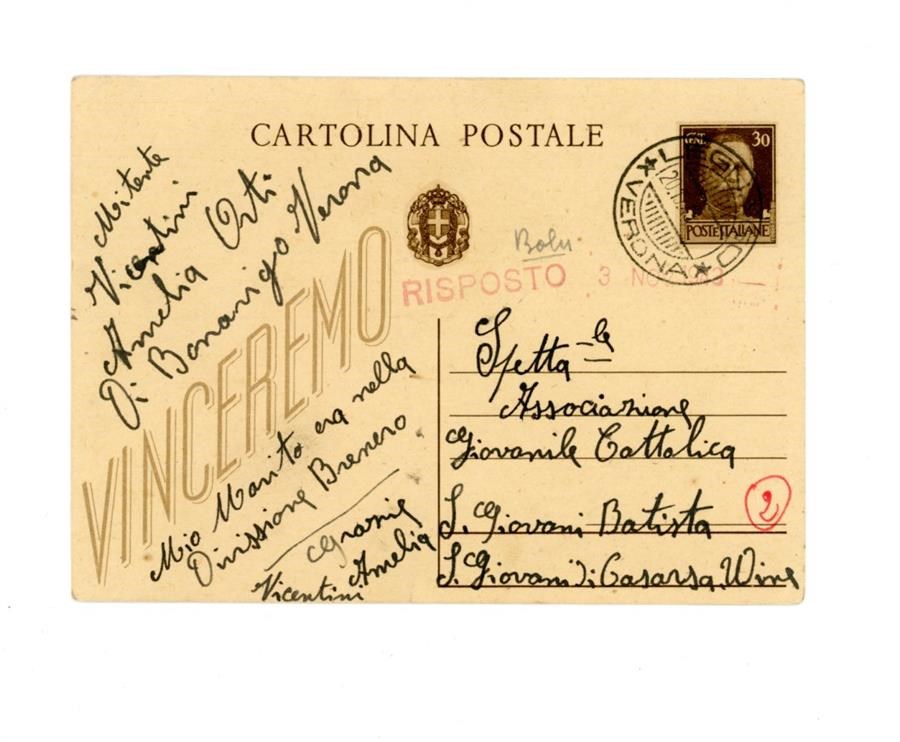 CARTOLINA POSTALE
CENT. 30
POSTE ITALIANE
LEGNAGO
VERONA
Mitente
Vicentini
Amelia Orti
Di Bonavigo Verona
VINCEREMO
RISPOSTO 3 NOV
Spetta-le
Associazione
Giovanile Cattolica
S. Giovani Batista
S. Giovani di Casarsa,
2
Mio Marito era nella
Divissione Brenero
Grazie
Vicentini Amelia